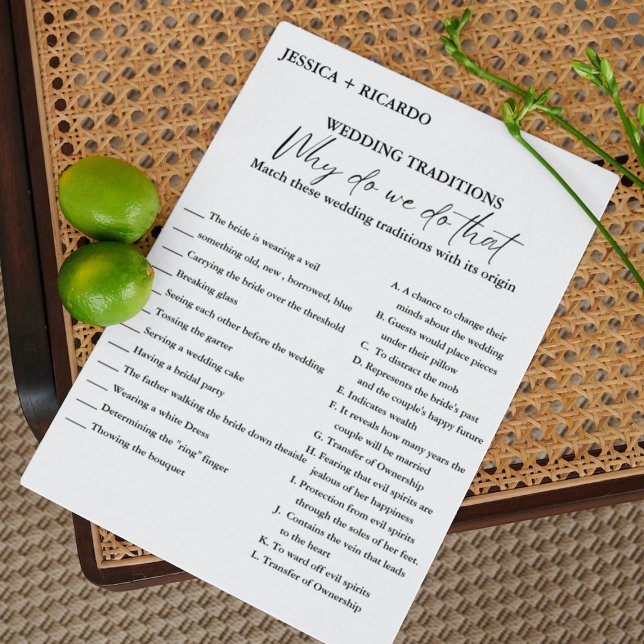 JESSICA + RICARDO
WEDDING TRADITIONS
Why do we do that
Match these wedding traditions with its origin
____ The bride is wearing a veil
____ something old, new , borrowed, blue
____ Carrying the bride over the threshold
____ Breaking glass
____ Seeing each other before the wedding
____ Tossing the garter
____ Serving a wedding cake
____ Having a bridal party
____ The father walking the bride down theaisle
____ Wearing a white Dress
____ Determining the "ring" finger
____ Thowing the bouquet
A. A chance to change their
minds about the wedding
B. Guests would place pieces
under their pillow
C. To distract the mob
D. Represents the bride's past
and the couple's happy future
E. Indicates wealth
F. It reveals how many years the
couple will be married
G. Transfer of Ownership
H. Fearing that evil spirits are
jealous of her happiness
I. Protection from evil spirits
through the soles of her feet.
J. Contains the vein that leads
to the heart
K. To ward off evil spirits
L. Transfer of Ownership